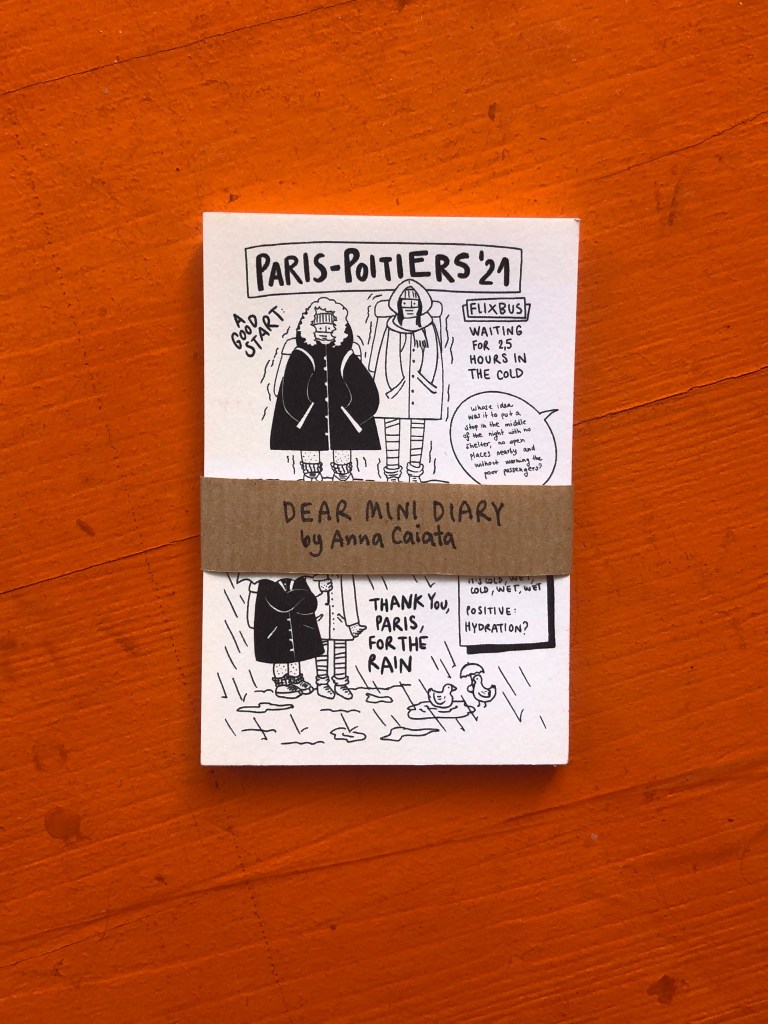 PARIS-POITIERS '21
A
GOOD
START:
FLIXBUS
WAITING
FOR 2,5
HOURS IN
THE COLD
Whose idea
was it to put a
stop in the middle
of the night with no
shelter, no open
places nearby and
without warning the
poor passengers?
DEAR MINI DIARY
by Anna Caiata
IT'S COLD, WET,
COLD, WET, WET
POSITIVE:
HYDRATION?
THANK YOU,
PARIS,
FOR THE
RAIN